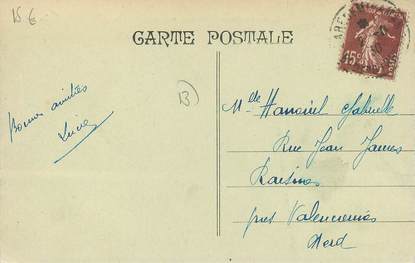 15 €
CARTE POSTALE
15c
13
Bonnes amitiés
Lucie
Mlle Gabrielle
Rue Jean Jaurès
Raismes
près Valenciennes
Nord